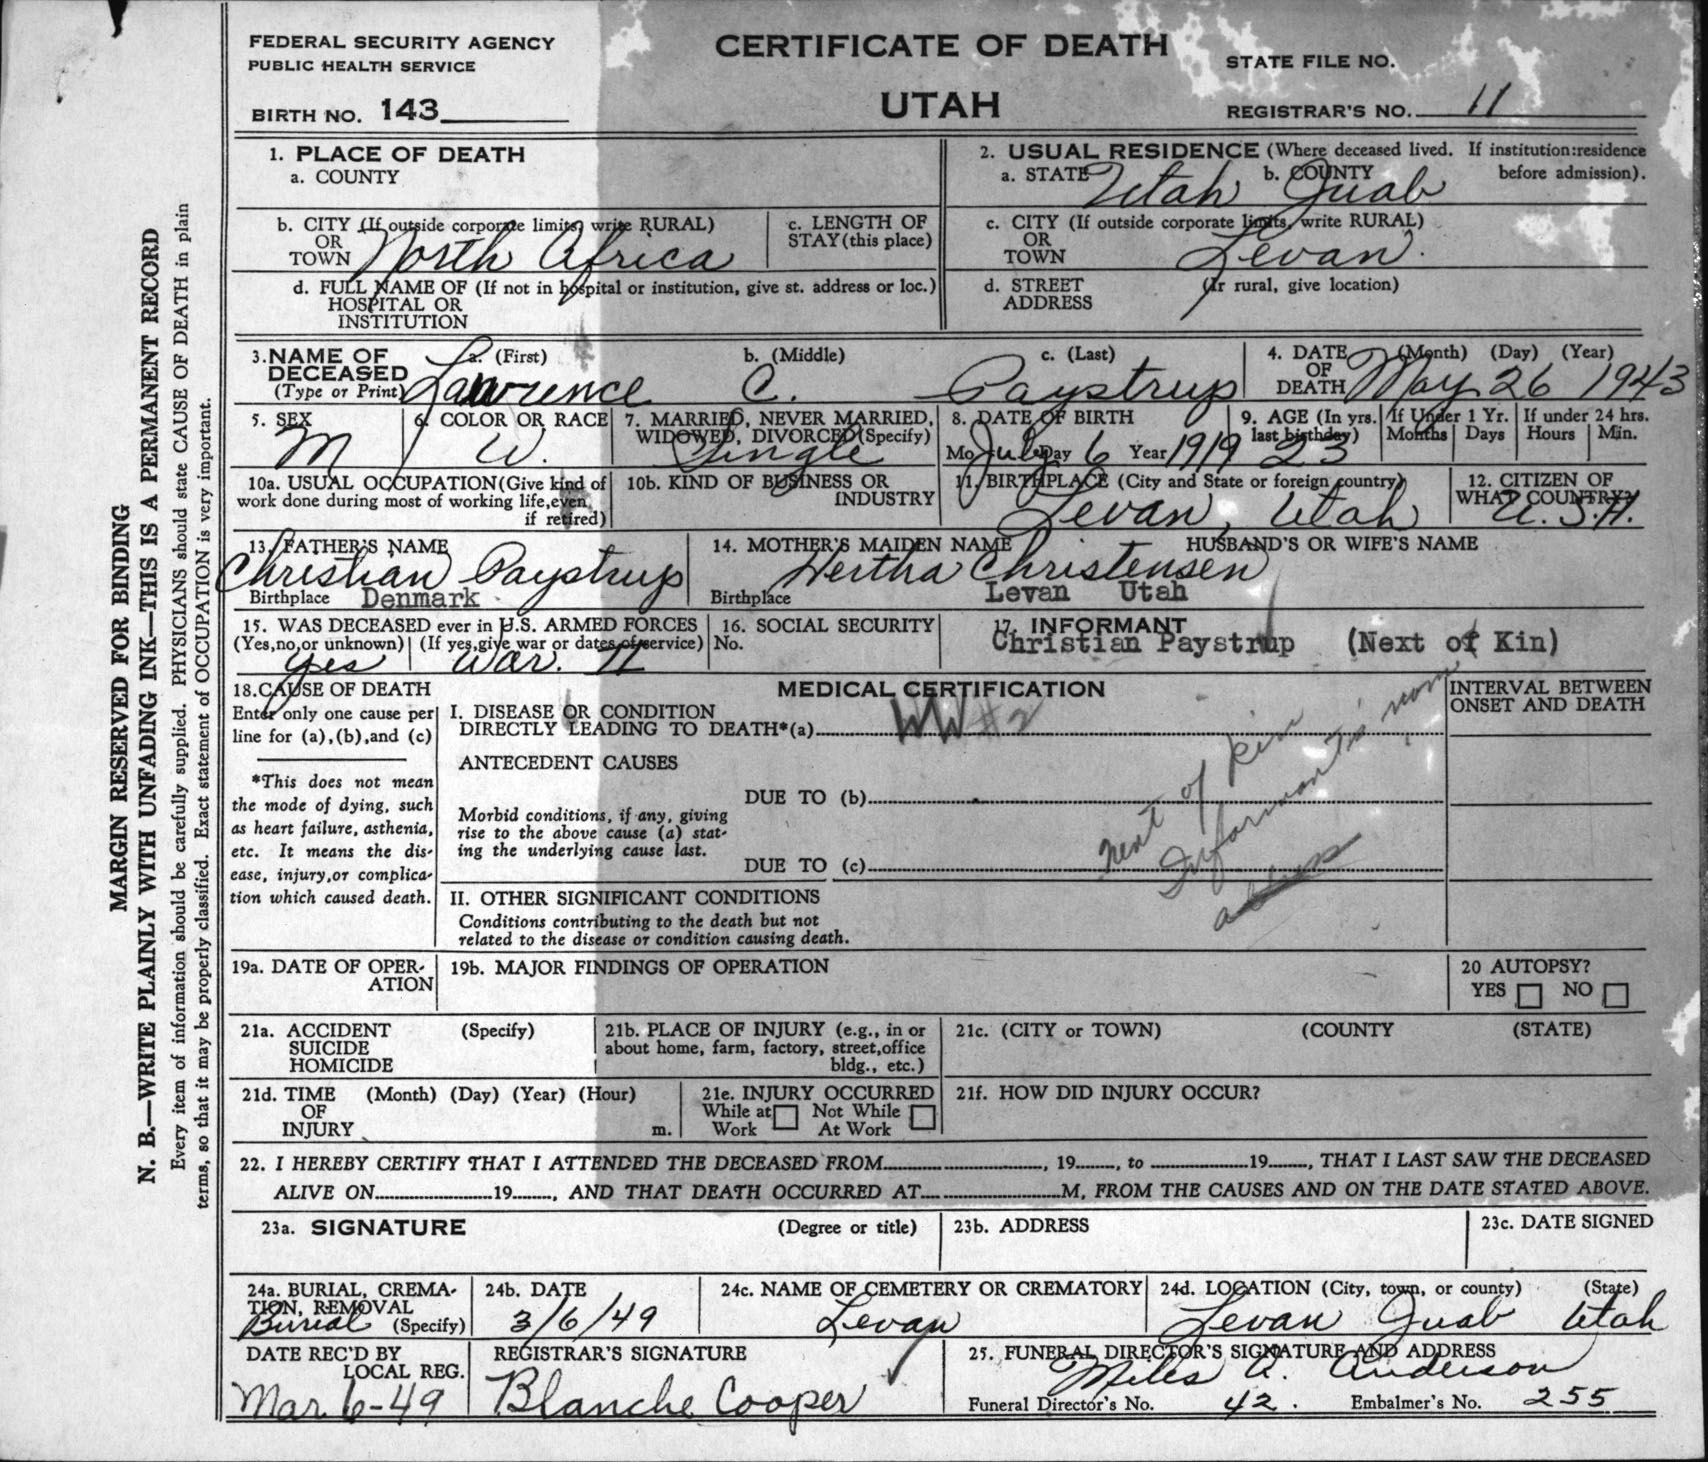 FEDERAL SECURITY AGENCY
PUBLIC HEALTH SERVICE
BIRTH NO. 143
CERTIFICATE OF DEATH
UTAH
STATE FILE NO.
REGISTRAR'S NO. 11
MARGIN RESERVED FOR BINDING
N. B.—WRITE PLAINLY WITH UNFADING INK—THIS IS A PERMANENT RECORD
Every item of information should be carefully supplied. PHYSICIANS should state CAUSE OF DEATH in plain
terms, so that it may be properly classified. Exact statement of OCCUPATION is very important.
1. PLACE OF DEATH
a. COUNTY
2. USUAL RESIDENCE (Where deceased lived. If institution:residence
before admission).
a. STATE Utah b. COUNTY Juab
b. CITY (If outside corporate limits, write RURAL)
OR
TOWN North Africa
c. LENGTH OF
STAY (this place)
c. CITY (If outside corporate limits, write RURAL)
OR
TOWN Levan.
d. FULL NAME OF (If not in hospital or institution, give st. address or loc.)
HOSPITAL OR
INSTITUTION
d. STREET (If rural, give location)
ADDRESS
3. NAME OF DECEASED
(Type or Print)
a. (First) b. (Middle) c. (Last)
Lawrence C. Paystrup
4. DATE OF DEATH (Month) (Day) (Year)
May 26 1943
5. SEX
M
6. COLOR OR RACE
W.
7. MARRIED, NEVER MARRIED,
WIDOWED, DIVORCED (Specify)
Single
8. DATE OF BIRTH
Mo. July Day 6 Year 1919
9. AGE (In yrs.
last birthday)
23
If Under 1 Yr.
Months Days
If under 24 hrs.
Hours Min.
10a. USUAL OCCUPATION (Give kind of
work done during most of working life, even
if retired)
10b. KIND OF BUSINESS OR
INDUSTRY
11. BIRTHPLACE (City and State or foreign country)
Levan, Utah
12. CITIZEN OF
WHAT COUNTRY?
U.S.A.
13. FATHER'S NAME
Christian Paystrup
Birthplace Denmark
14. MOTHER'S MAIDEN NAME
Hertha Christensen
Birthplace Levan Utah
HUSBAND'S OR WIFE'S NAME
15. WAS DECEASED ever in U.S. ARMED FORCES
(Yes, no, or unknown) (If yes, give war or dates of service)
yes War. II
16. SOCIAL SECURITY
No.
17. INFORMANT
Christian Paystrup (Next of Kin)
18. CAUSE OF DEATH
Enter only one cause per
line for (a), (b), and (c)
*This does not mean
the mode of dying, such
as heart failure, asthenia,
etc. It means the dis-
ease, injury, or complica-
tion which caused death.
MEDICAL CERTIFICATION
INTERVAL BETWEEN
ONSET AND DEATH
I. DISEASE OR CONDITION
DIRECTLY LEADING TO DEATH*(a) WW #2
ANTECEDENT CAUSES
DUE TO (b)
Morbid conditions, if any, giving
rise to the above cause (a) stat-
ing the underlying cause last.
DUE TO (c)
next of kin
Informant's name
address
II. OTHER SIGNIFICANT CONDITIONS
Conditions contributing to the death but not
related to the disease or condition causing death.
19a. DATE OF OPER-
ATION
19b. MAJOR FINDINGS OF OPERATION
20 AUTOPSY?
YES NO
21a. ACCIDENT (Specify)
SUICIDE
HOMICIDE
21b. PLACE OF INJURY (e.g., in or
about home, farm, factory, street, office
bldg., etc.)
21c. (CITY or TOWN) (COUNTY (STATE)
21d. TIME (Month) (Day) (Year) (Hour)
OF
INJURY m.
21e. INJURY OCCURRED
While at Work Not While At Work
21f. HOW DID INJURY OCCUR?
22. I HEREBY CERTIFY THAT I ATTENDED THE DECEASED FROM , 19 , to 19 , THAT I LAST SAW THE DECEASED
ALIVE ON 19 , AND THAT DEATH OCCURRED AT M, FROM THE CAUSES AND ON THE DATE STATED ABOVE.
23a. SIGNATURE (Degree or title)
23b. ADDRESS
23c. DATE SIGNED
24a. BURIAL, CREMA-
TION, REMOVAL
Burial (Specify)
24b. DATE
3/6/49
24c. NAME OF CEMETERY OR CREMATORY
Levan
24d. LOCATION (City, town, or county) (State)
Levan Juab Utah
DATE REC'D BY
LOCAL REG.
Mar. 6-49
REGISTRAR'S SIGNATURE
Blanche Cooper
25. FUNERAL DIRECTOR'S SIGNATURE AND ADDRESS
Miles A. Anderson
Funeral Director's No. 42. Embalmer's No. 255